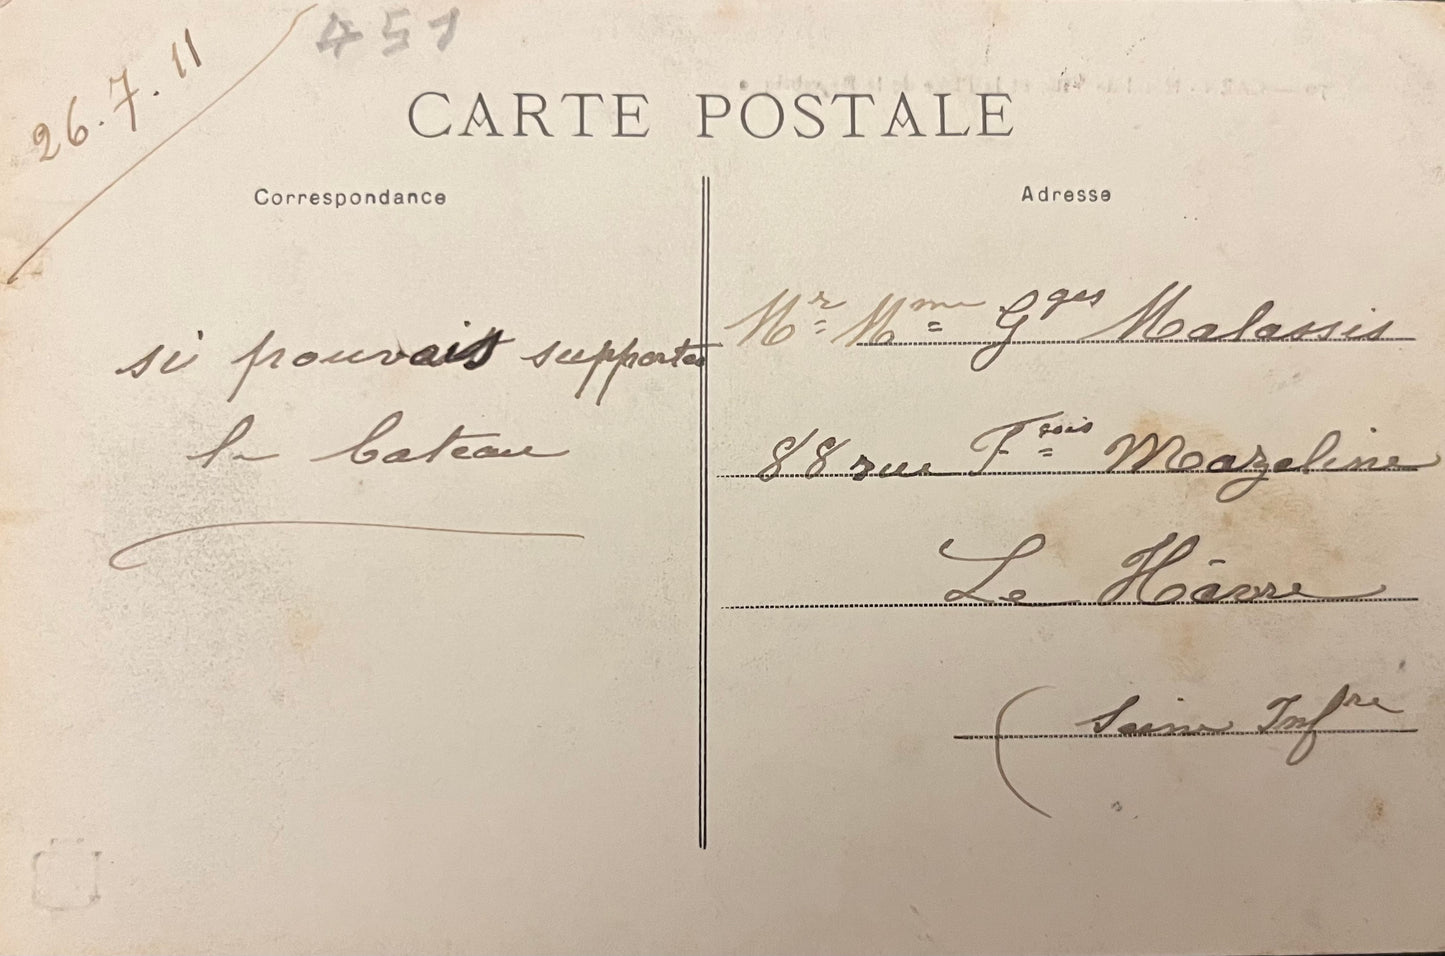 26.7.11
451
CARTE POSTALE
Correspondance
si pouvais supporter
le bateau
Adresse
Mr Mme Gges Malassis
88 rue Fsois Mazeline
Le Hâvre
(Seine Infre